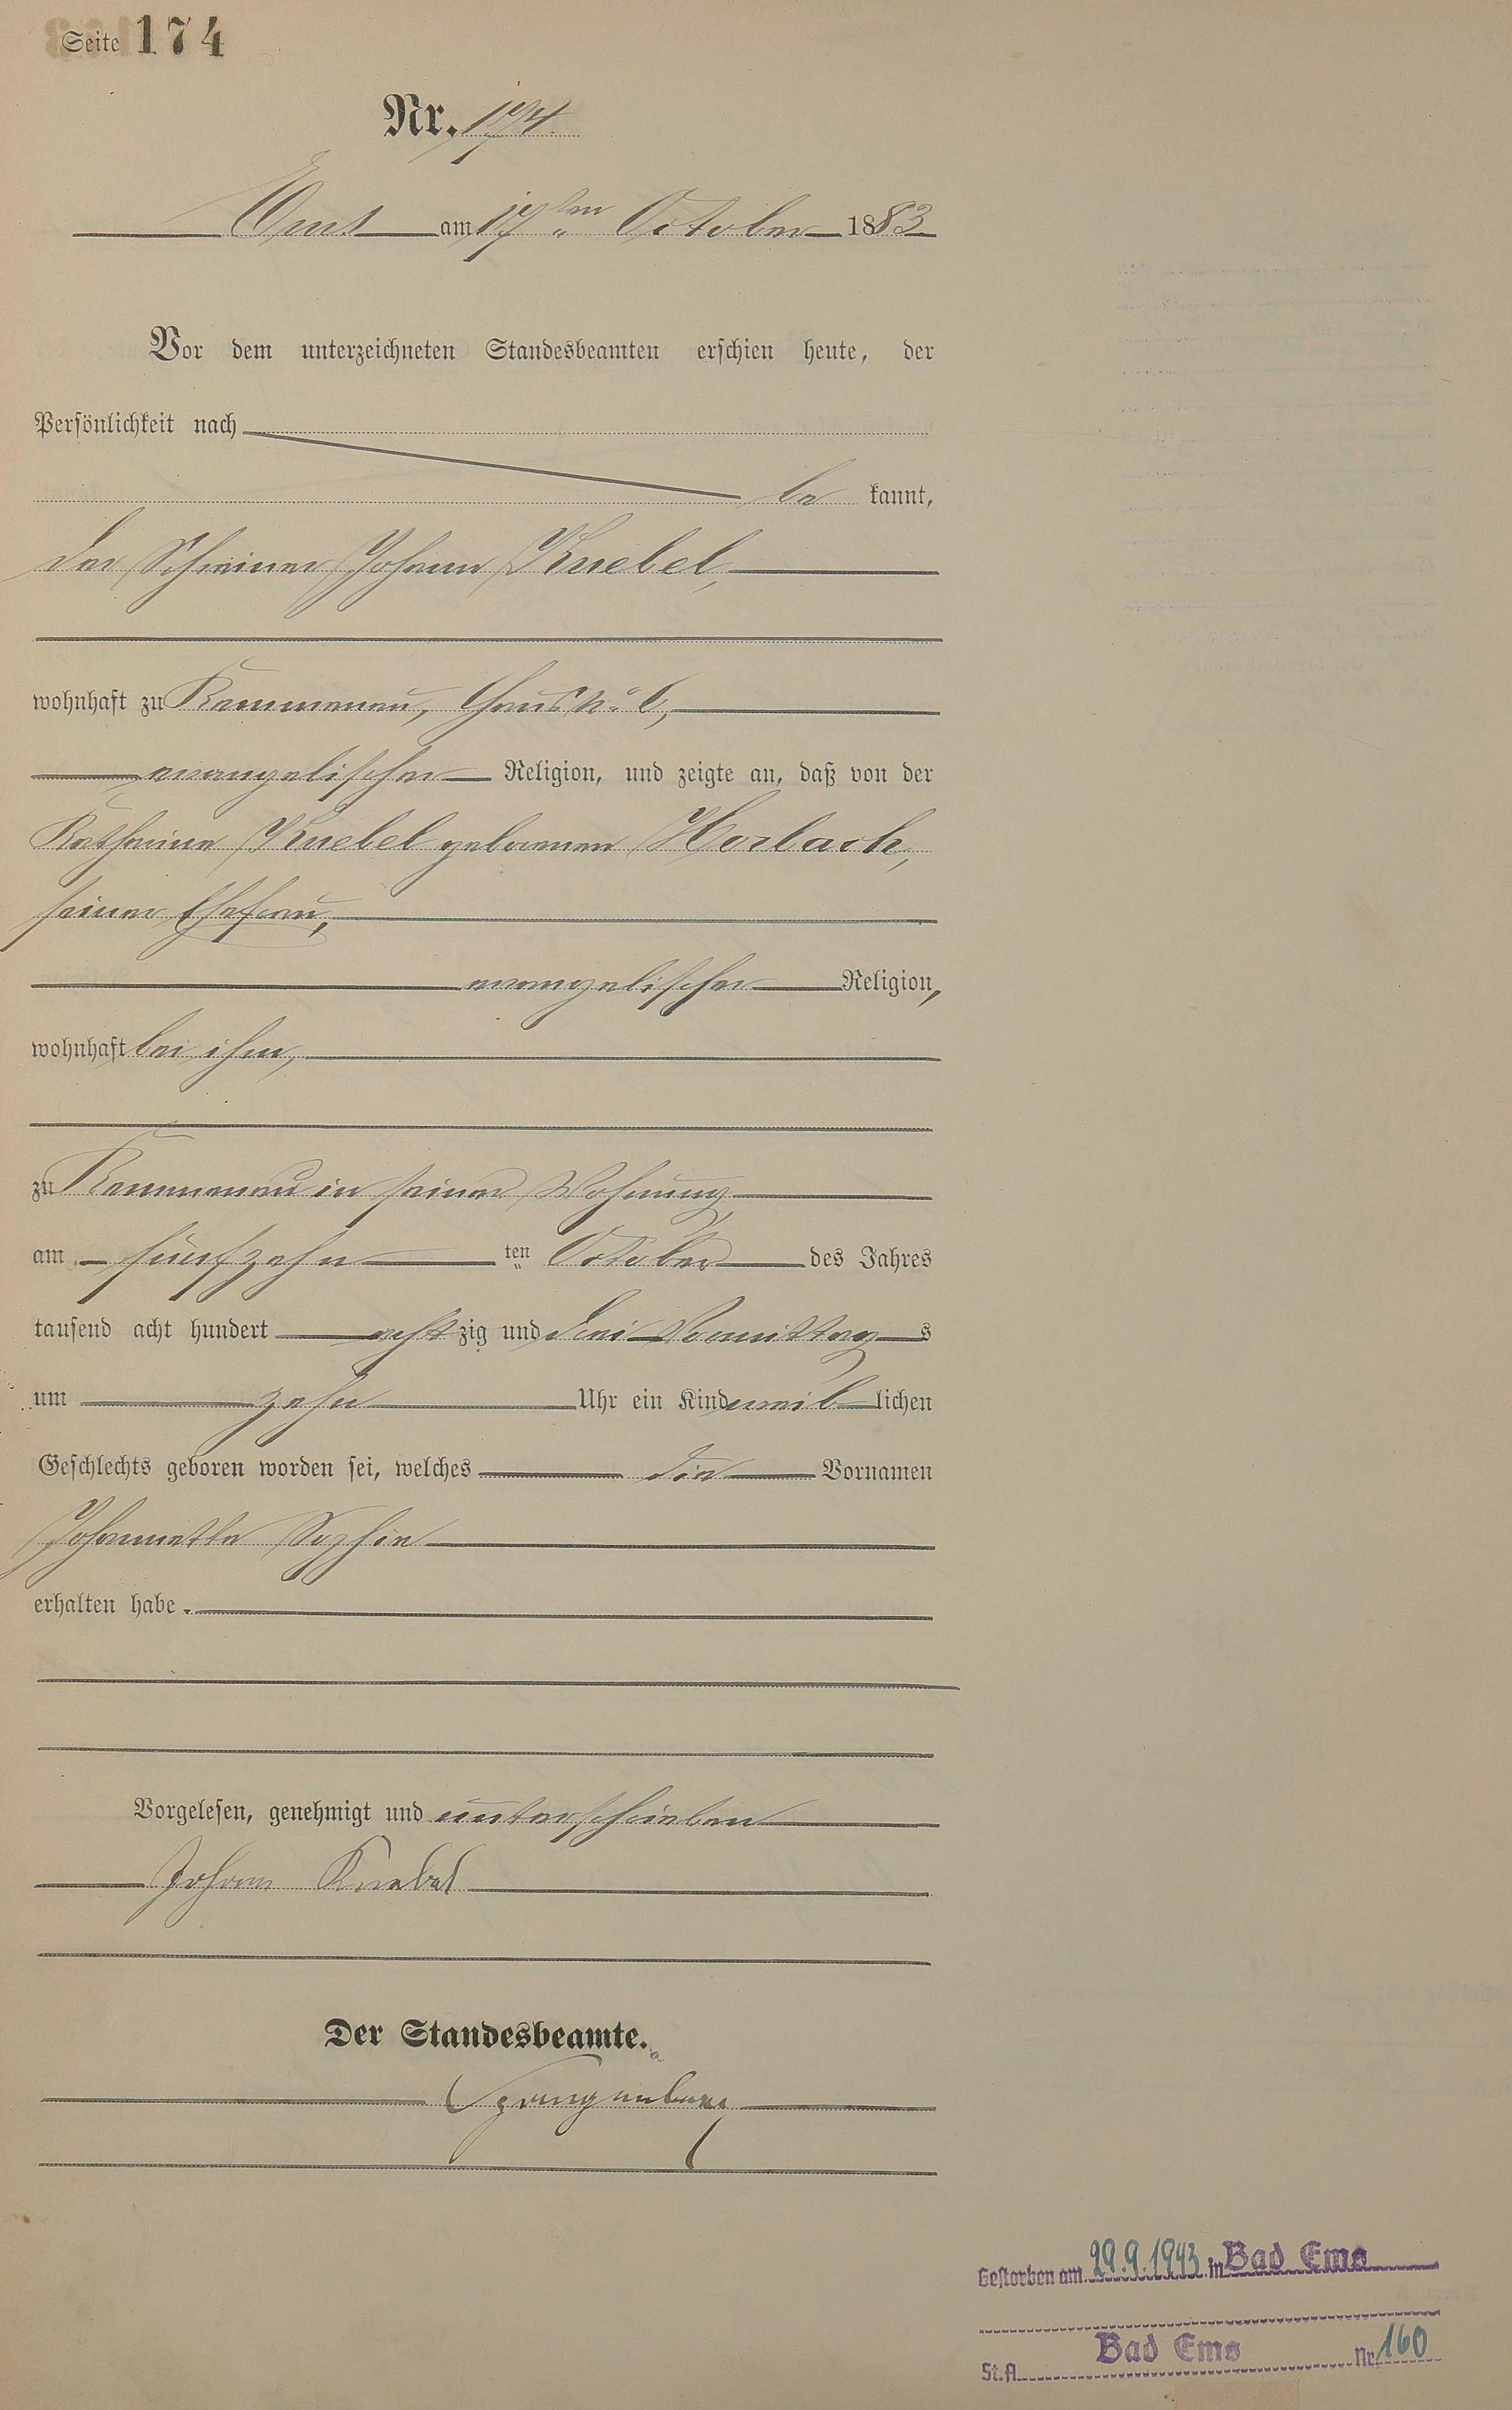 Seite 174
Nr. 174.
Ems am 17ten October 1883
Vor dem unterzeichneten Standesbeamten erschien heute, der
Persönlichkeit nach
be kannt,
der Schreiner Johann Knebel,
wohnhaft zu Kemmenau, Haus No 6,
evangelischer Religion, und zeigte an, daß von der
Katharine Knebel geborenen Horbach,
seiner Ehefrau,
evangelischer Religion,
wohnhaft bei ihm,
zu Kemmenau in seiner Wohnung
am fünfzehn ten October des Jahres
tausend acht hundert acht zig und drei Vormittag s
um zehn Uhr ein Kind weib lichen
Geschlechts geboren worden sei, welches die Vornamen
Johannette Sophie
erhalten habe.
Vorgelesen, genehmigt und unterschrieben
Johann Knebel
Der Standesbeamte.
Spangenberg
Gestorben am 29.9.1943 in Bad Ems
St.A. Bad Ems Nr. 160